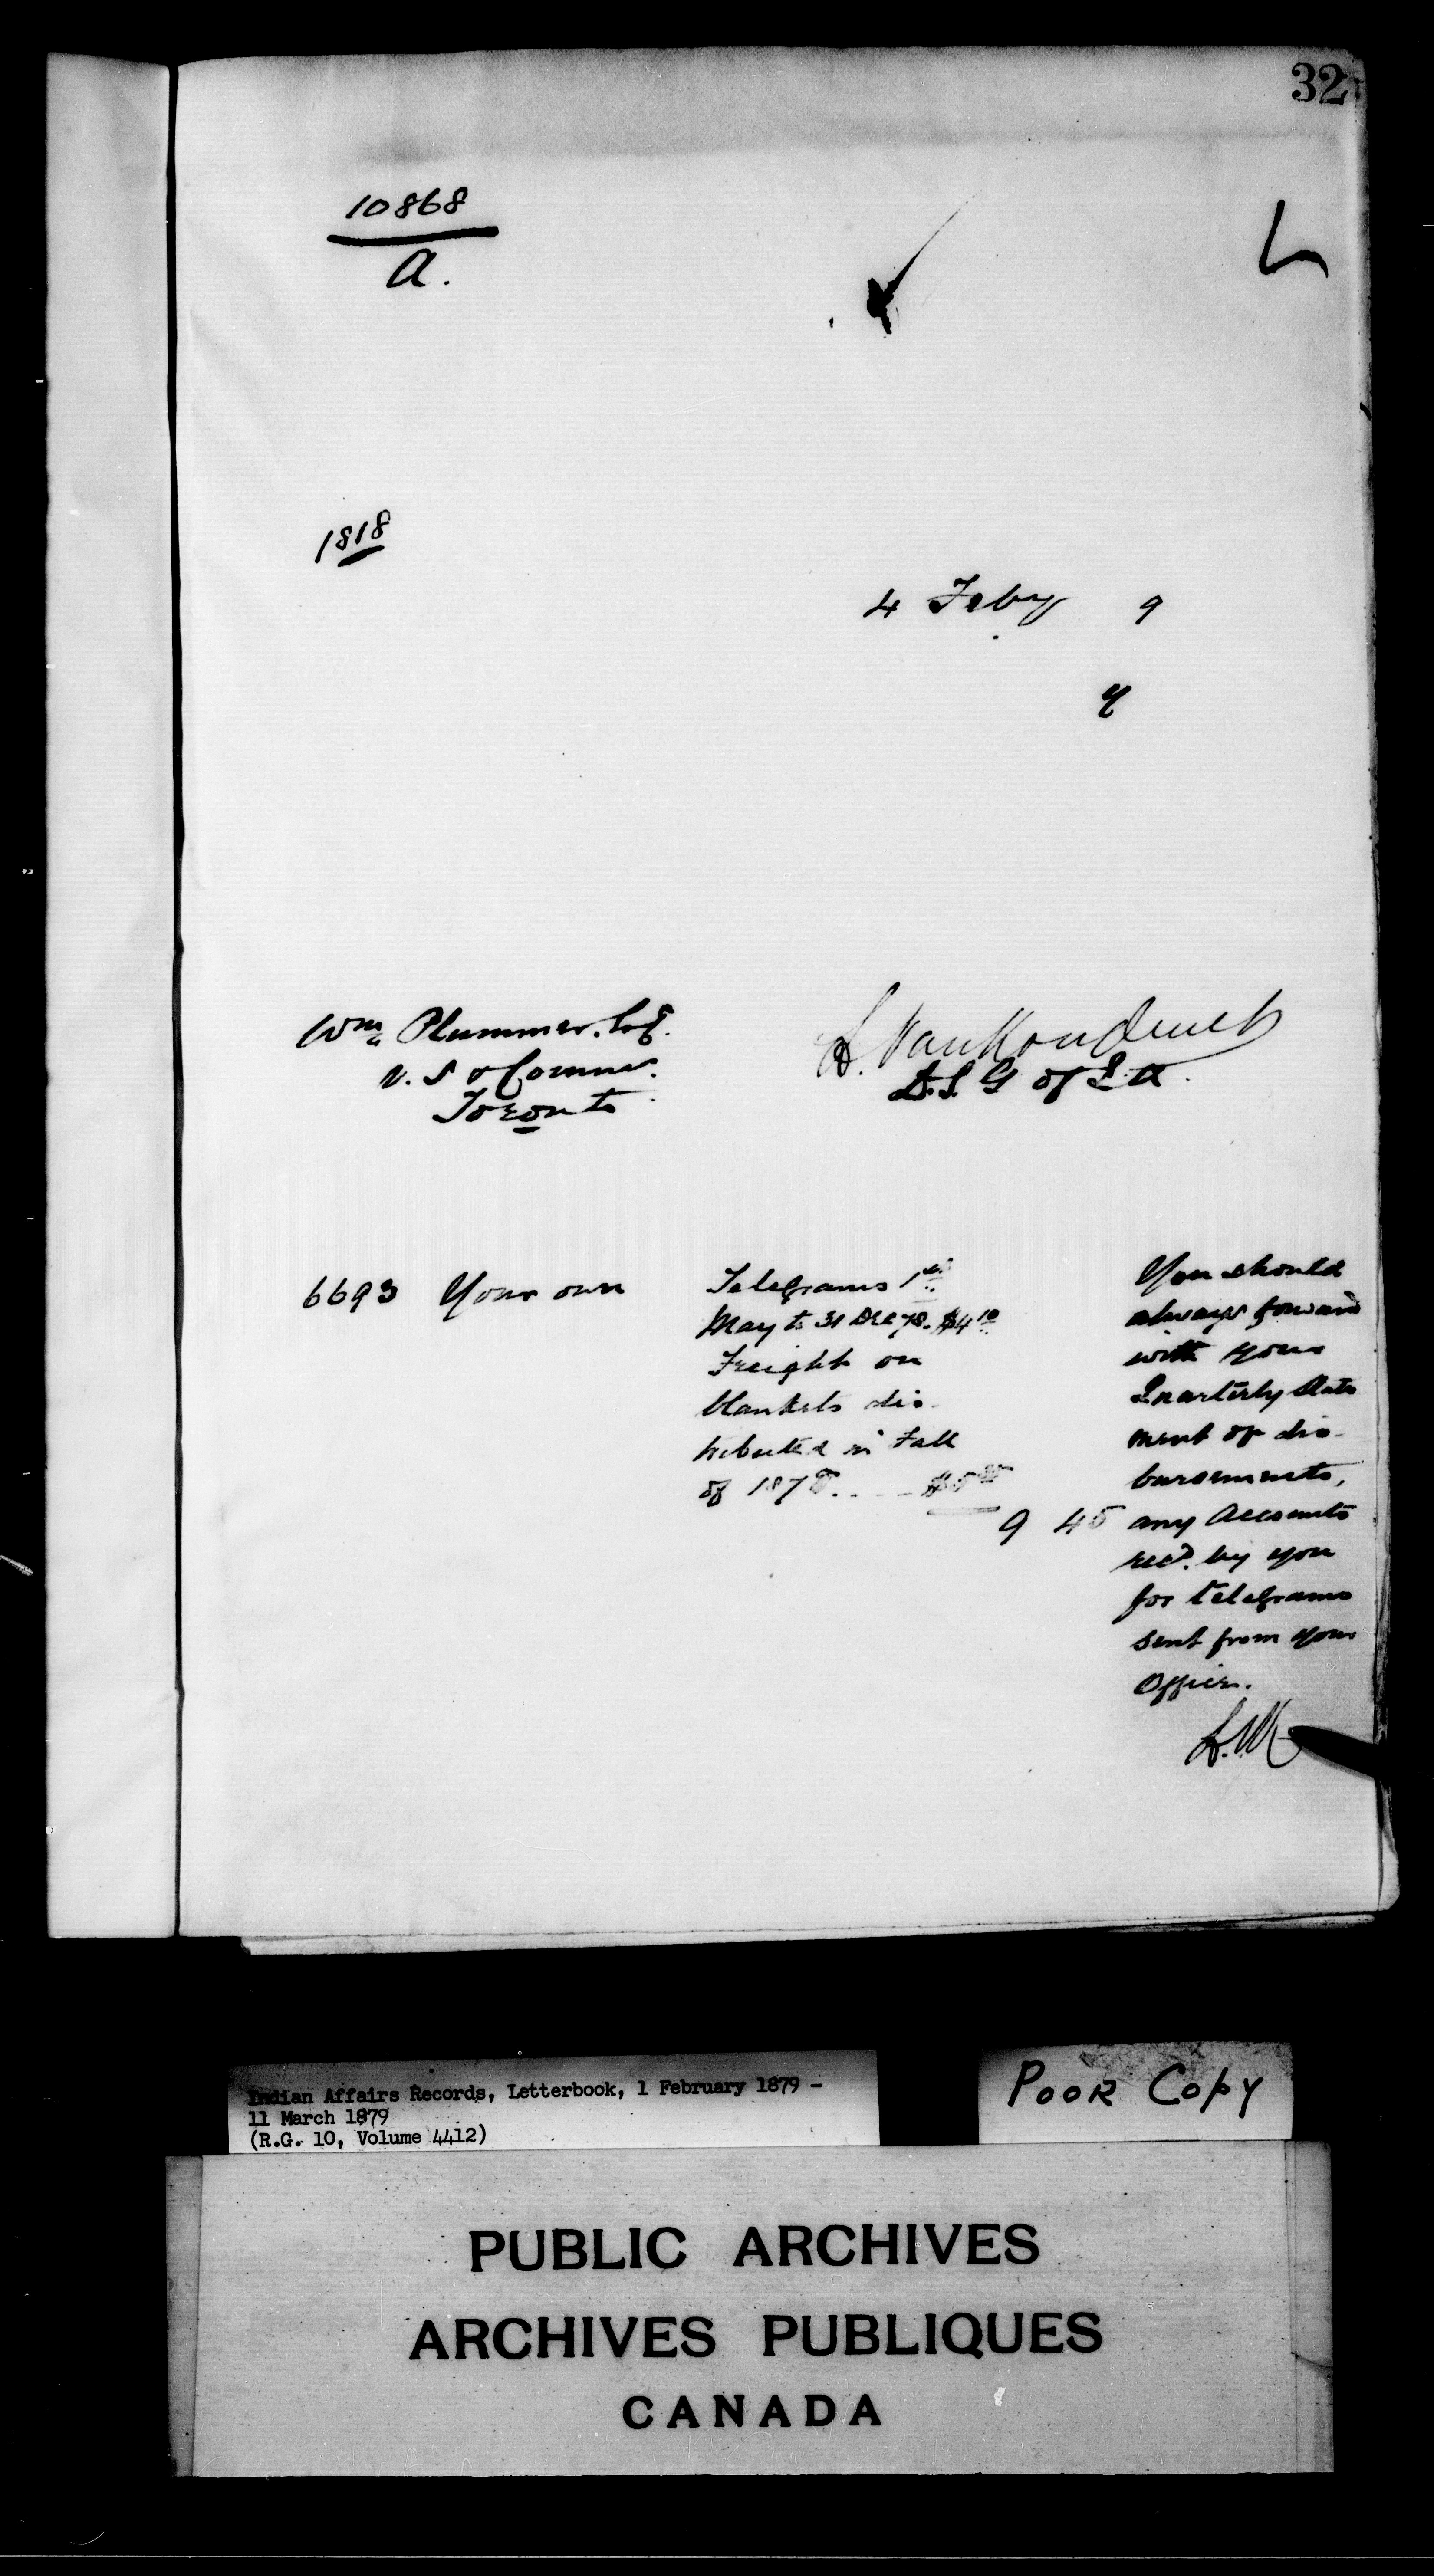 32
10868
a.
L
1818
4 Feby 9
y
Wm Plummer. Esq.
V. S & Commr.
Toronto
L. VanKoughnet
D.S.G of I.A.
6693 Your own
Telegrams 1st
May to 31 Dec 78. $4 10
Freight on
blankets dis-
tributed in Fall
of 1878. . . . $5 35
9 45
You should
always forward
with your
Quarterly State
ment of dis-
bursements,
any Accounts
recd. by you
for telegrams
sent from your
Office.
L.VK
Indian Affairs Records, Letterbook, 1 February 1879 -
11 March 1879
(R.G. 10, Volume 4412)
POOR COPY
PUBLIC ARCHIVES
ARCHIVES PUBLIQUES
CANADA